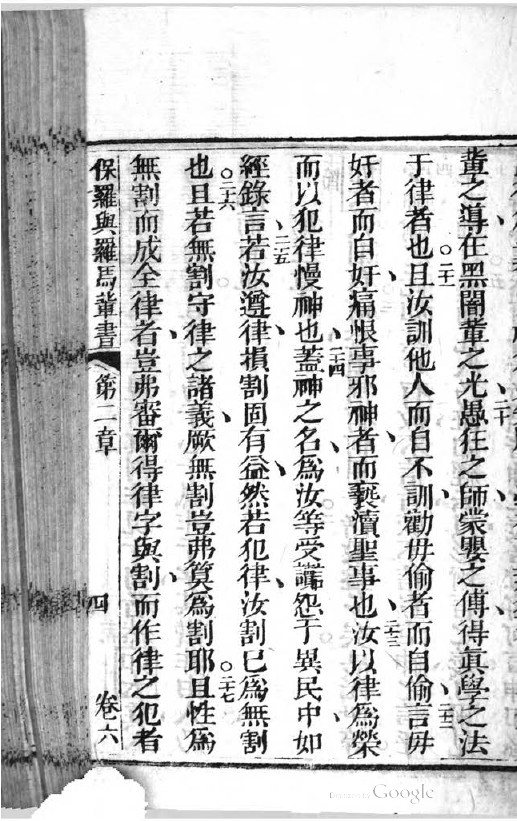 輩之導在黑闇輩之光二十愚狂之師、蒙嬰之傅、得眞學之法
于律者也○二十一且汝訓他人而自不訓、勸毋偷者而自偷、二十二言毋
奸者而自奸、痛恨事邪神者、而褻瀆聖事也、二十三汝以律爲榮
而以犯律慢神也、二十四蓋神之名、爲汝等受讟怨于異民中、如
經錄言、二十五若汝遵律、損割固有益、然若犯律、汝割已爲無割
也○二十六且若無割守律之諸義、厥無割豈弗算爲割耶○二十七且性爲
無割而成全律者、豈弗審爾得律字與割、而作律之犯者
保羅與羅馬輩書 第二章 四 卷六
Digitized by Google